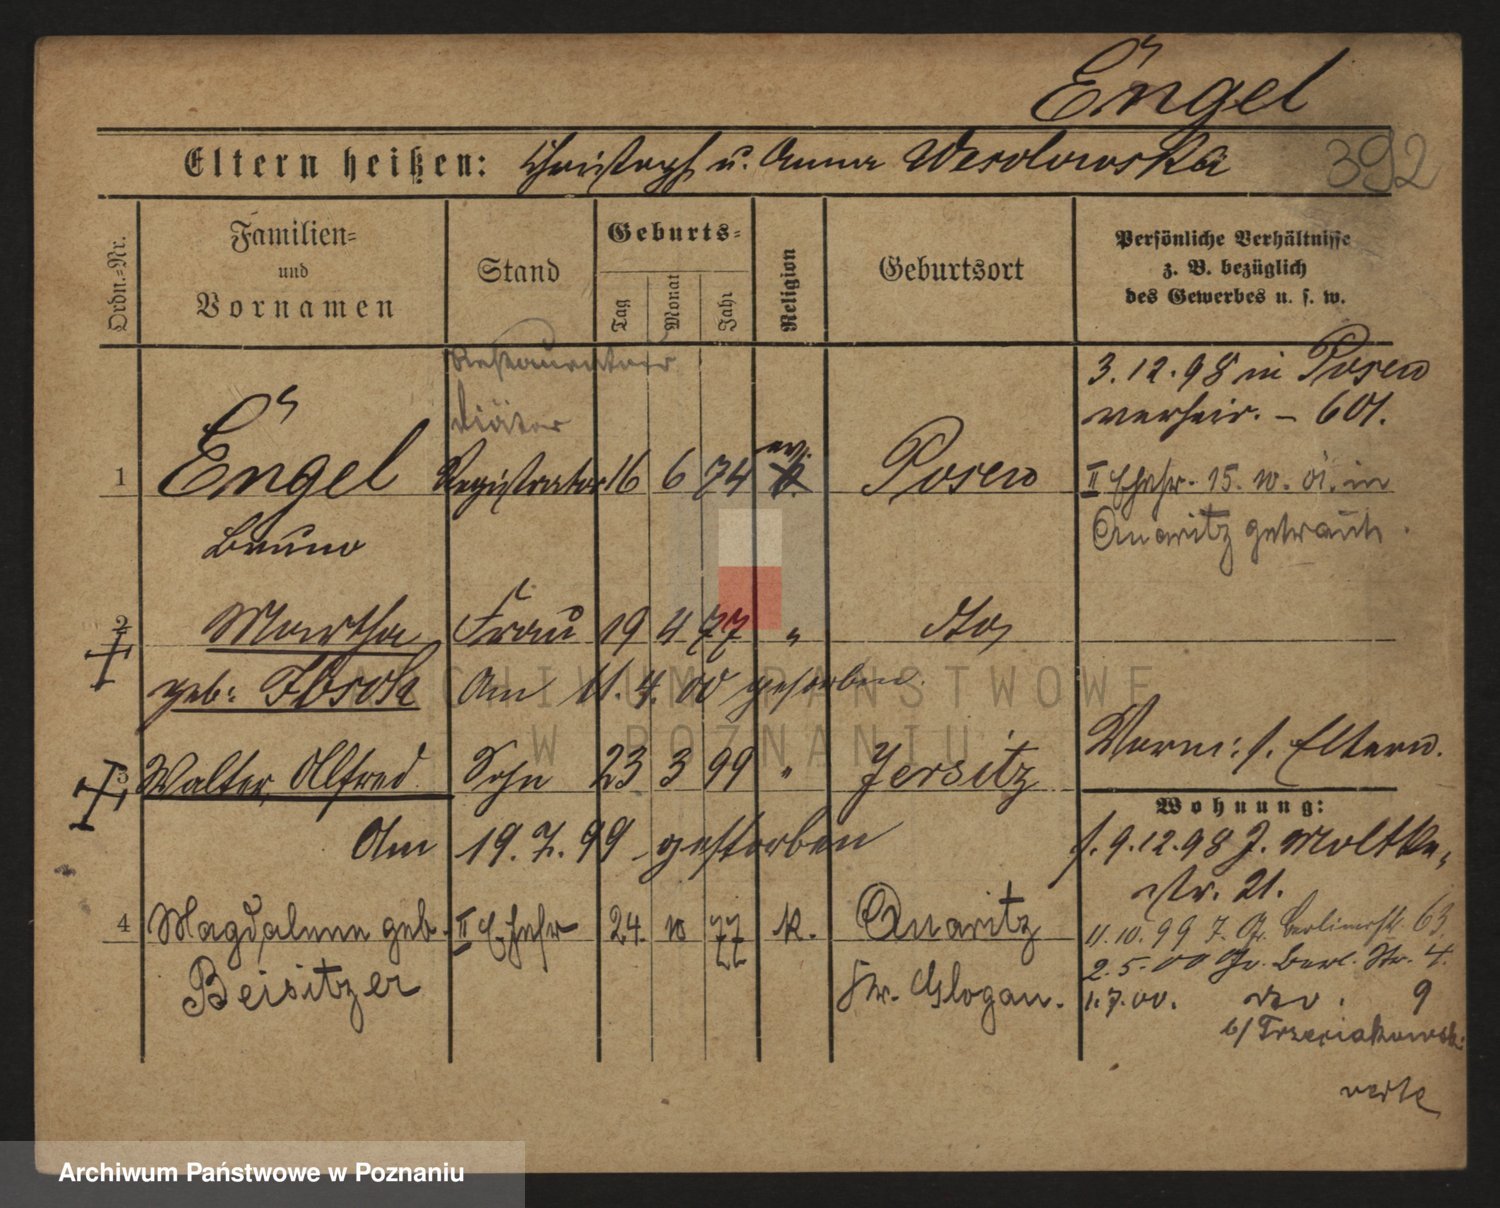 Engel
392
Eltern heißen: Christoph u. Anna Wesolowska
Ordn.=Nr.
Familien=
und
Vornamen
Stand
Geburts=
Tag
Monat
Jahr
Religion
Geburtsort
Persönliche Verhältnisse
z. B. bezüglich
des Gewerbes u. s. w.
Restaurateur
Diätar
3.12.98 in Posen
verheir. - 601.
1 Engel Registrator 16 6 74 k. ev. Posen
Bruno
II Ehefr. 15.10.01. in
Quaritz getraut.
2 Martha Frau 19 4 77 " do
geb: Am 11.4.00 gestorben.
3 Walter, Alfred Sohn 23 3 99 " Jersitz
Vorm: s. Eltern.
Am 19.7.99 gestorben
Wohnung:
s. 9.12.98 J. Moltke-
str. 21.
4 Magdalena geb. II Ehefr 24. 10 77 k. Quaritz
Beisitzer
Kr. Glogau.
11.10.99 J. Gr. Berlinerstr. 63.
2.5.00 Gr. Berl. Str. 4.
1.7.00. 9
b/ Trzeciakowski
verte
ARCHIWUM PAŃSTWOWE
W POZNANIU
Archiwum Państwowe w Poznaniu